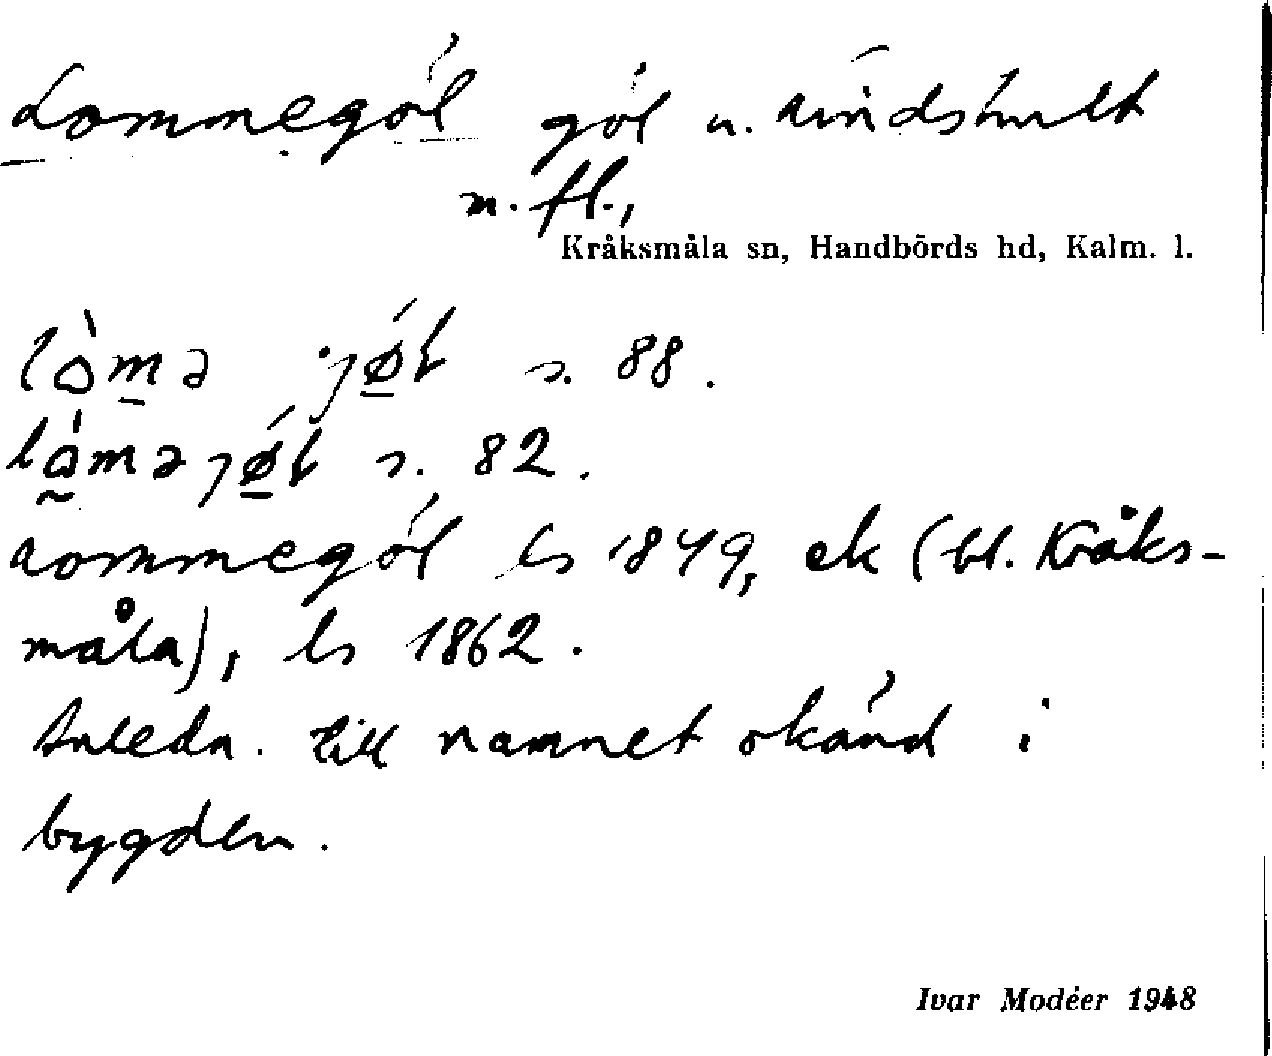 Lommegöl göl u. Lindshult
m. fl.,
Kråksmåla sn, Handbörds hd, Kalm. l.
s. 88.
s. 82.
Lommegöl ls 1849, ek (bl. Kråks-
måla), ls 1862.
Anledn. till namnet okänd i
bygden.
Ivar Modéer 1948